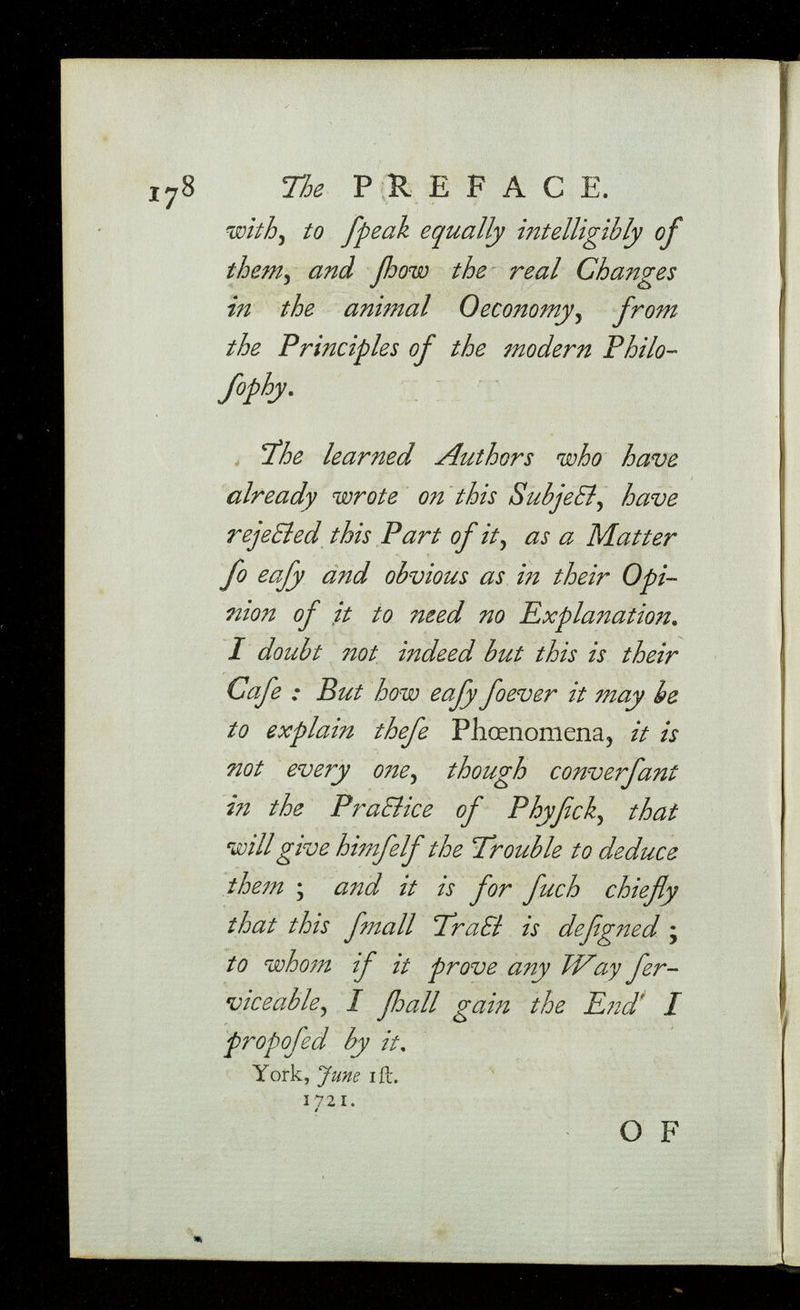 178 The PREFACE.
with, to ſpeak equally intelligibly of
them, and ſhow the real Changes
in the animal Oeconomy, from
the Principles of the modern Philo-
ſophy.
The learned Authors who have
already wrote on this Subject, have
rejected this Part of it, as a Matter
ſo eaſy and obvious as in their Opi-
nion of it to need no Explanation.
I doubt not indeed but this is their
Caſe : But how eaſy ſoever it may be
to explain theſe Phœnomena, it is
not every one, though converſant
in the Practice of Phyſick, that
will give himſelf the Trouble to deduce
them ; and it is for ſuch chiefly
that this ſmall Tract is deſigned ;
to whom if it prove any Way ſer-
viceable, I ſhall gain the End I
propoſed by it.
York, June 1ſt.
1721.
OF